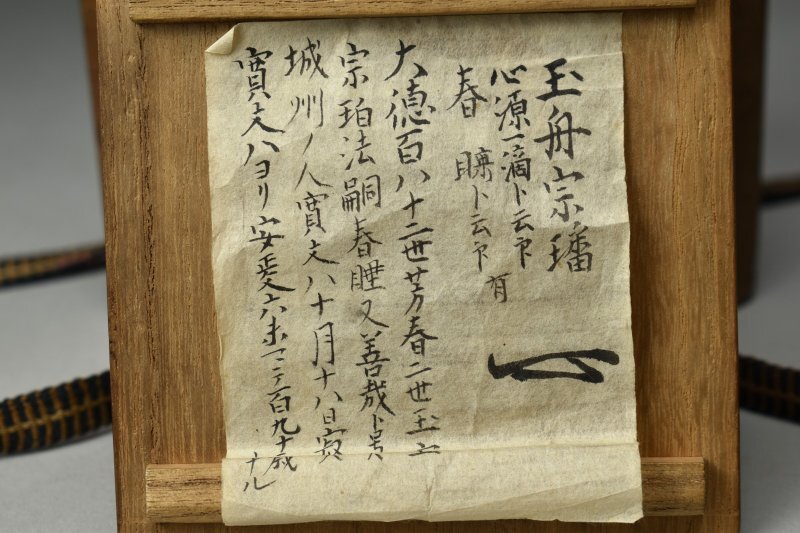 玉舟宗璠
心源一滴ト云印
春睡ト云印 有
大徳百八十二世芳春二世玉
宗珀法嗣春睡又善哉ト号ス
城州ノ人寛文八十月十八日寂
寛文八ヨリ安政六未マテ百九十歳
ナル